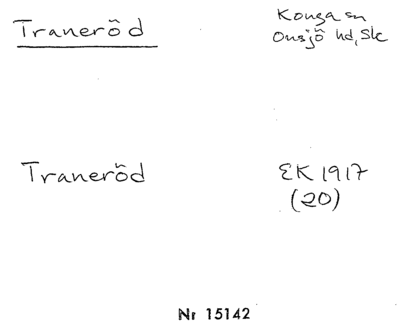 Traneröd
Konga sn
Onsjö hd, Sk
Traneröd
EK 1917
(20)
Nr 15142